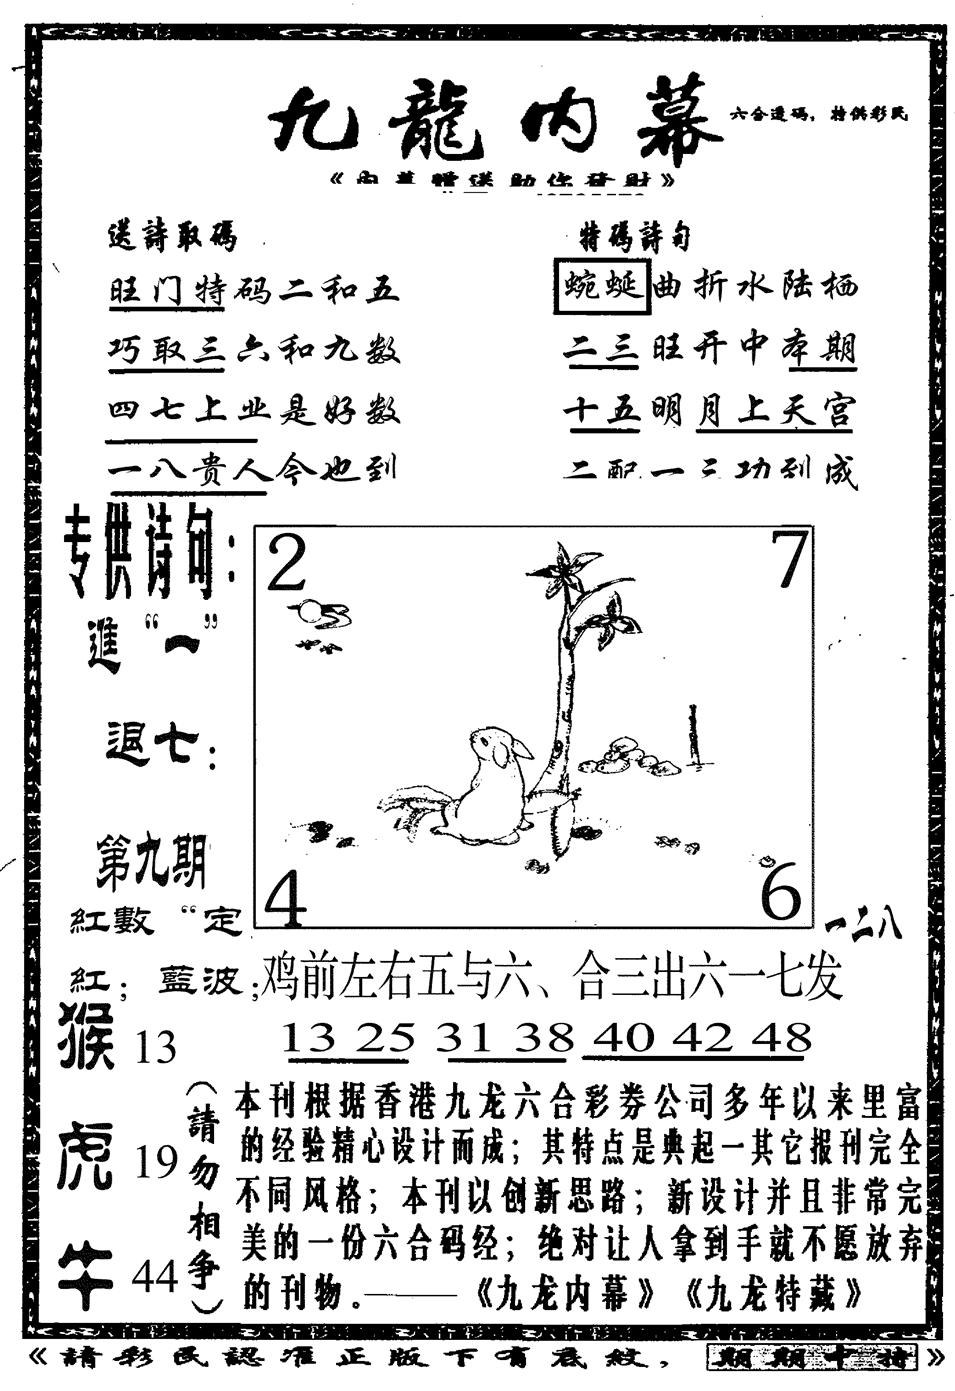 九龍内幕
六合透码，特供彩民
《內幕贈送助你發財》
送詩取碼
旺门特码二和五
巧取三六和九数
四七上业是好数
一八贵人今也到
特碼詩句
蜿蜒曲折水陆栖
二三旺开中本期
十五明月上天宫
二配一三功到成
专供诗句：
進“一”
退七：
第九期
紅數“定
紅；藍波；
2
7
4
6
一二八
鸡前左右五与六、合三出六一七发
13 25 31 38 40 42 48
猴 13
虎 19
牛 44
（請勿相争）
本刊根据香港九龙六合彩券公司多年以来里富
的经验精心设计而成；其特点是典起一其它报刊完全
不同风格；本刊以创新思路；新设计并且非常完
美的一份六合码经；绝对让人拿到手就不愿放弃
的刊物。——《九龙内幕》《九龙特藏》
《請彩民認准正版下有底紋，期期中特》